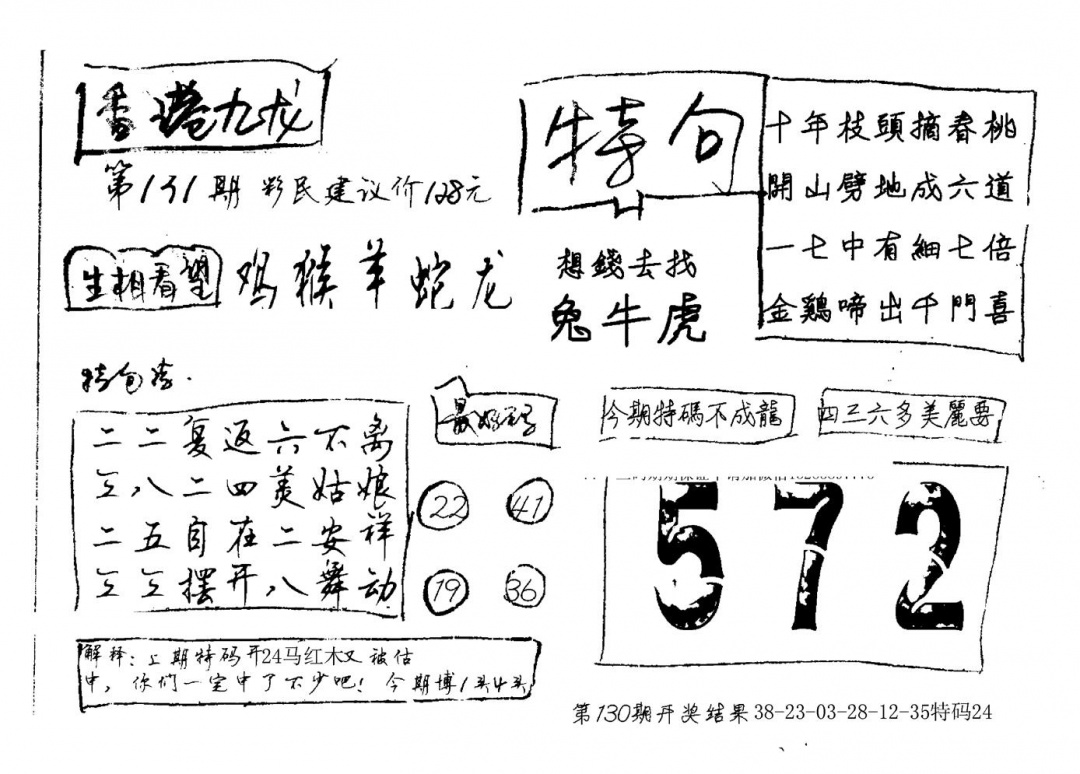 香港九龙
第131期 彩民建议价128元
生相看望 鸡猴羊蛇龙
特句
十年枝頭摘春桃
開山劈地成六道
一七中有細七倍
金鷄啼出千門喜
想錢去找
兔牛虎
二二复返六不离
三八二四美姑娘
二五自在二安祥
三三摆开八舞动
22 41
19 36
今期特碼不成龍
四三六多美麗要
572
解释：上期特码开24马红木又被估
中，你们一定中了不少吧！今期博1头4头
第130期开奖结果 38-23-03-28-12-35特码24